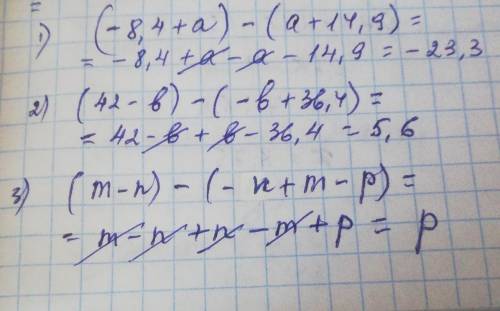 =
1) (-8,4+a) - (a+14,9) =
= -8,4+a-a-14,9 = -23,3
2) (42-в) - (-в+36,4) =
= 42-в+в-36,4 = 5,6
3) (m-n) - (-n+m-p) =
= m-n+n-m+p = p